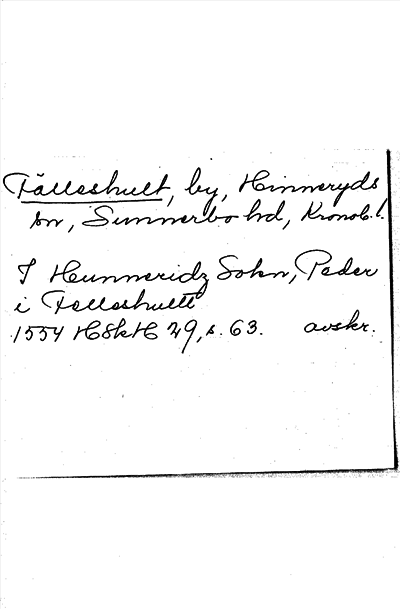 Fälleshult, by, Hinneryds
sn, Sunnerbo hd, Kronob. l.
I Hunneridz Sokn, Peder
i Felleshultt
1554 HSkH 29, s. 63. avskr.